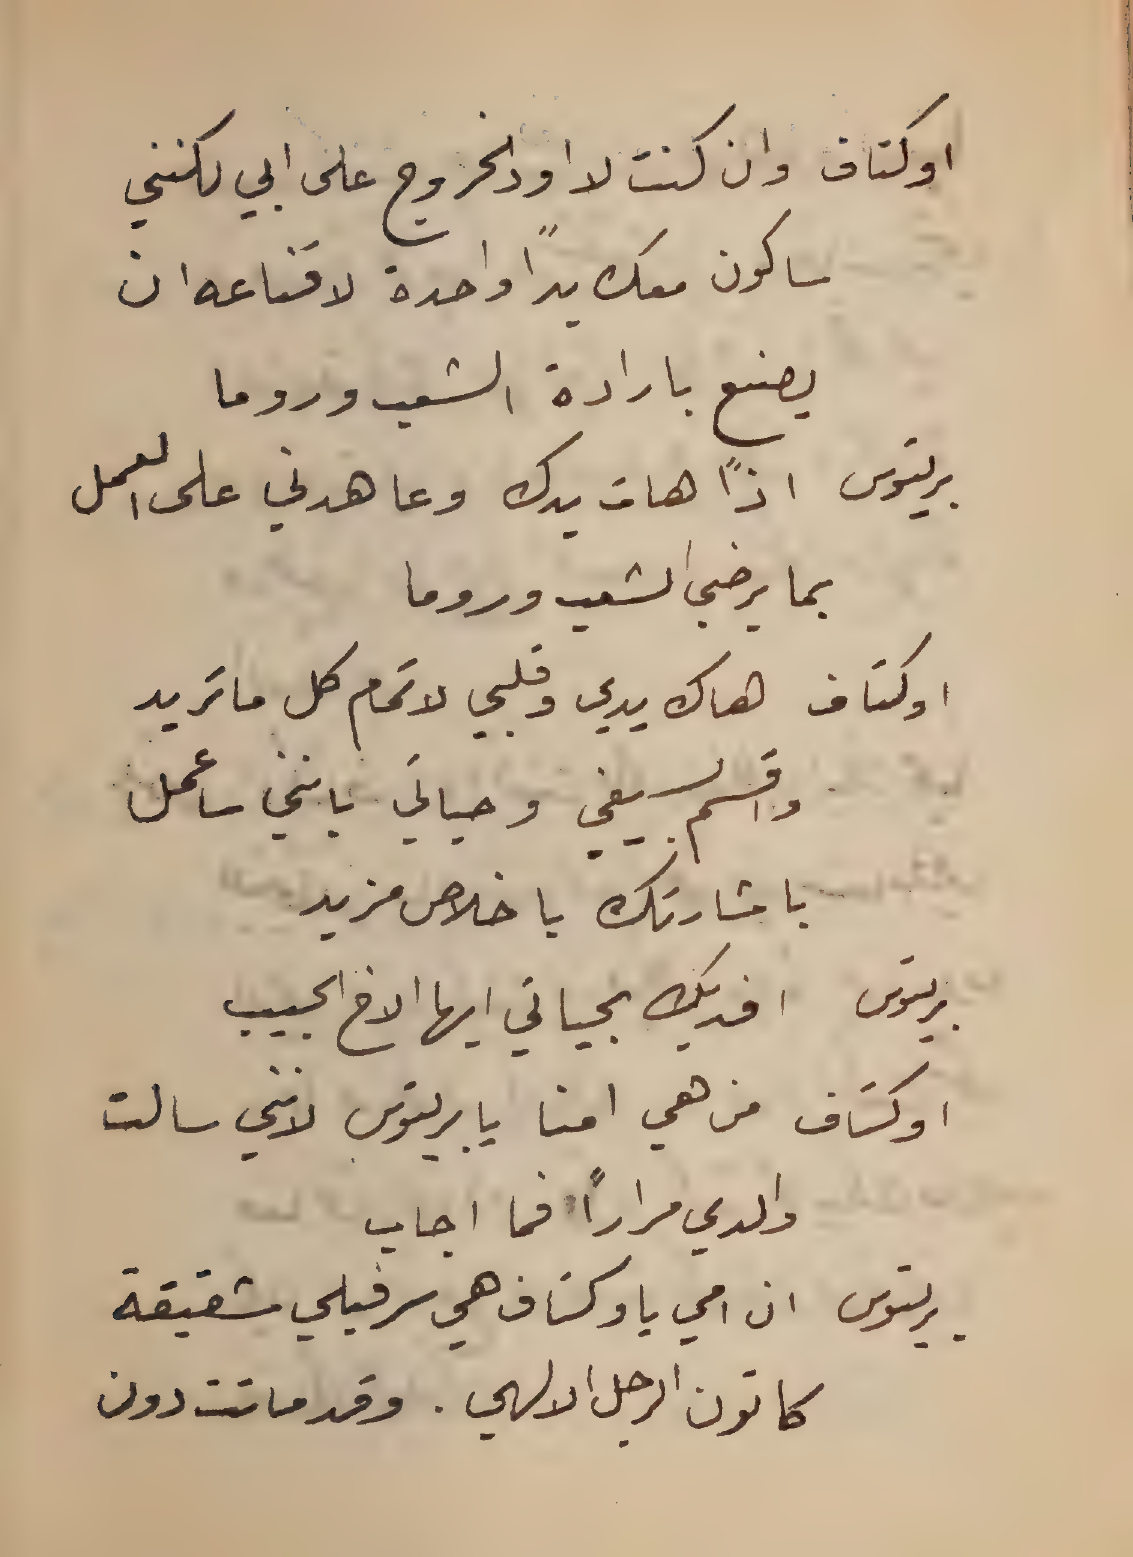 اوكتاف وان كنت لا اود الخروج على ابي لكنني
ساكون معك يداً واحدة لاقناعه ان
يصنع بارادة الشعب وروما
بريتوس اذاً هات يدك وعاهدني على العمل
بما يرضي الشعب وروما
اوكتاف هاك يدي وقلبي لاتمام كل ما تريد
واقسم بسيفي وحياتي بانني ساعمل
باشارتك باخلاص مزيد
بريتوس افديك بحياتي ايها الاخ الحبيب
اوكتاف من هي امنا يا بريتوس لانني سالت
والدي مراراً فما اجاب
بريتوس ان امي يا وكتاف هي سرفيلي شقيقة
كاتون الرجل الالهي . وقد ماتت دون